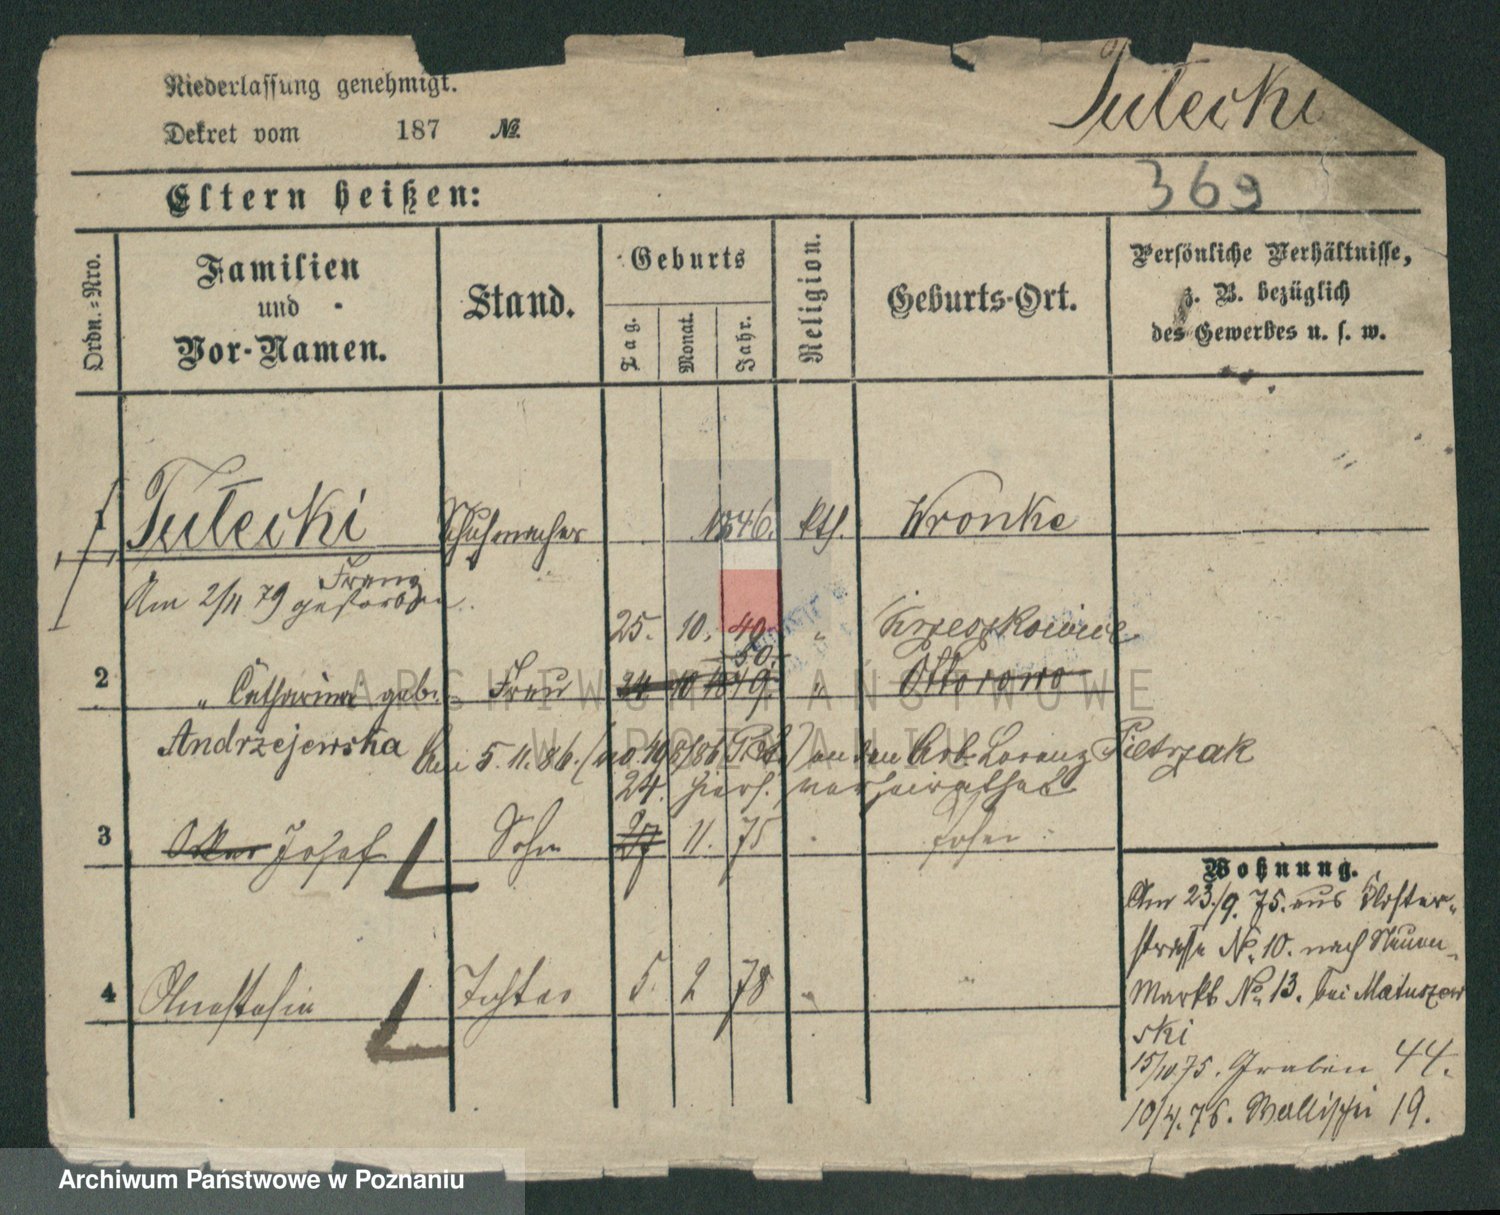 Niederlassung genehmigt.
Dekret vom 187 №
Tulecki
Eltern heißen:
369
Ordn.-Nro.
Familien
und
Vor-Namen.
Stand.
Geburts
Tag.
Monat.
Jahr.
Religion.
Geburts-Ort.
Persönliche Verhältnisse,
z. B. bezüglich
des Gewerbes u. s. w.
Tulecki Schuhmacher 46. kth. Wronke
Franz
Am 2/11 79 gestorben.
25. 10. 40. "
50.
2 " Catharina geb. Frau 24 10 49. " Ottorowo
Andrzejewska Am 5.11.86. an den Arb. Lorenz Pietrzak
24. hiers. verheirathet
3 Josef Sohn 27 11. 75 Posen
4 Anastasia Tochter 5. 2 78 "
Wohnung.
Am 23./9. 75. aus Kloster-
strasse No. 10. nach Neuen-
Markt No. 13. bei Matuszew
ski
15/10.75. Graben 44.
10/4.76. Wallischei 19.
ARCHIWUM PAŃSTWOWE
W POZNANIU
Archiwum Państwowe w Poznaniu